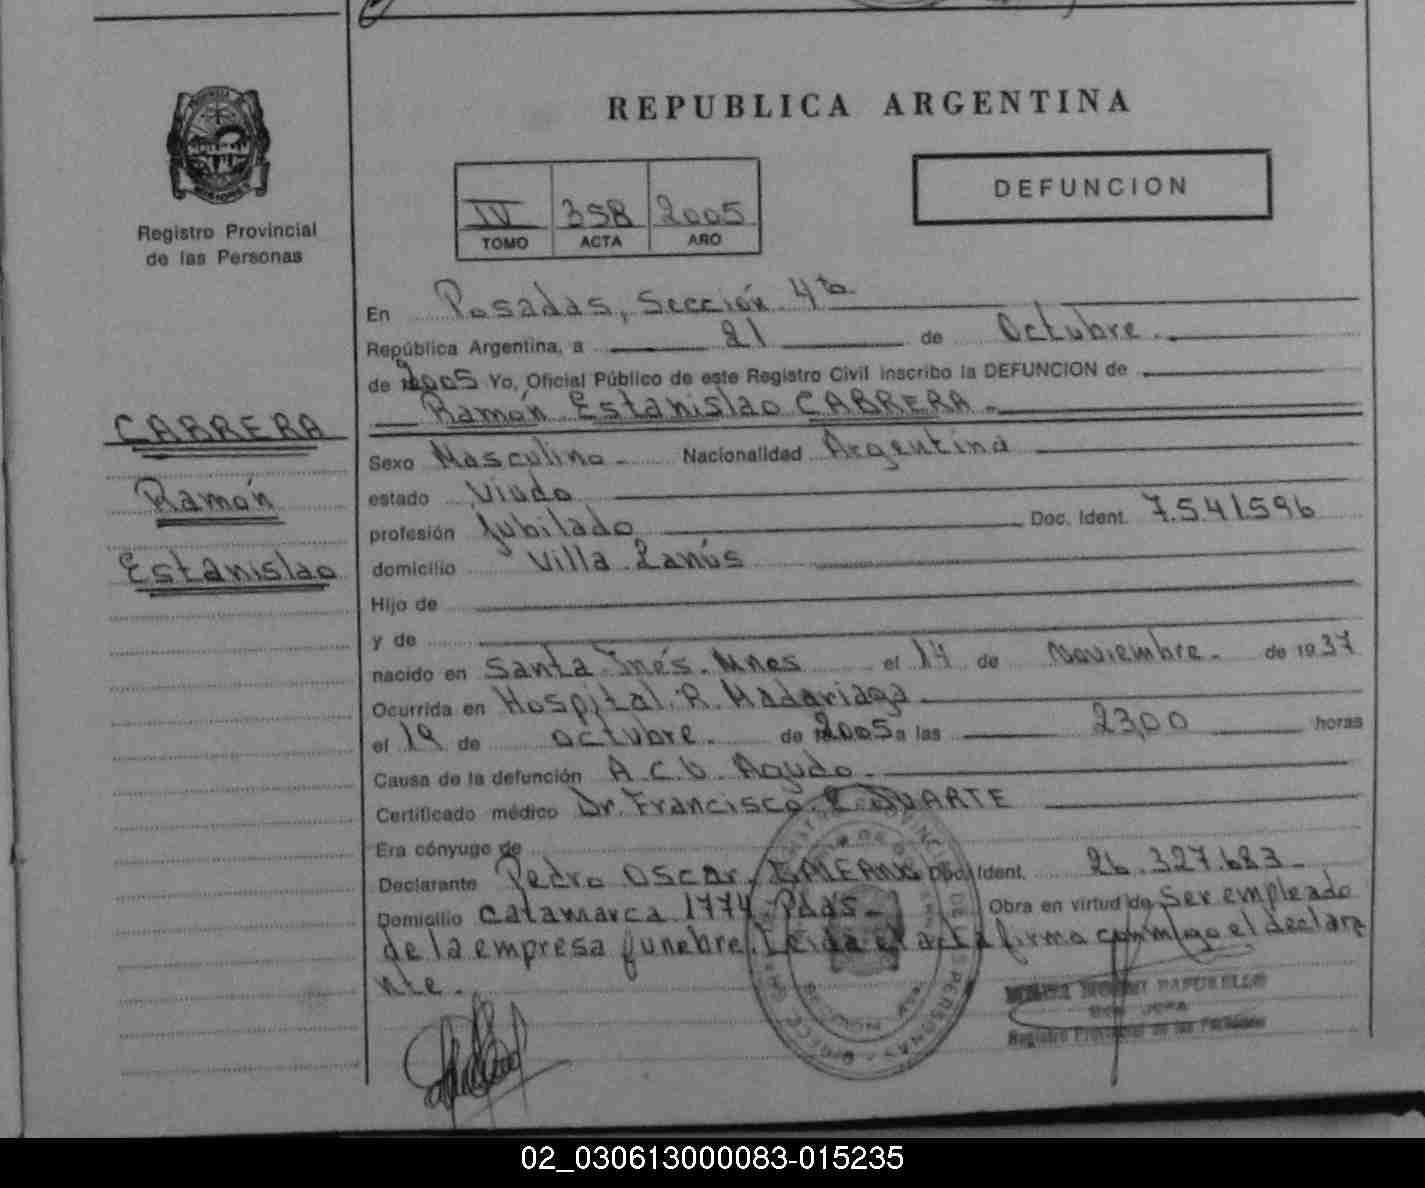 REPUBLICA ARGENTINA
DEFUNCION
IV 358 2005
TOMO ACTA AÑO
Registro Provincial
de las Personas
CABRERA
Ramón
Estanislao
En Posadas, Sección 4ta
República Argentina, a 21 de Octubre.
de 2005 Yo, Oficial Público de este Registro Civil inscribo la DEFUNCION de
Ramón Estanislao CABRERA.
Sexo Masculino Nacionalidad Argentina
estado Viudo
profesión Jubilado Doc. Ident. 7.541.596
domicilio Villa Lanús
Hijo de
y de
nacido en Santa Inés. Mnes el 14 de Noviembre. de 1937
Ocurrida en Hospital. R. Madariaga
el 19 de octubre. de 2005 a las 23,00 horas
Causa de la defunción A.C.V. Agudo.
Certificado médico Dr. Francisco DUARTE
Era cónyuge de
Declarante Pedro Oscar. Doc. Ident. 26.327.683
Domicilio Catamarca 1774, Pdas. Obra en virtud de Ser empleado
de la empresa funebre. Leida el acta firma conmigo el declara
nte.
Registro Provincial de las Personas
02_030613000083-015235